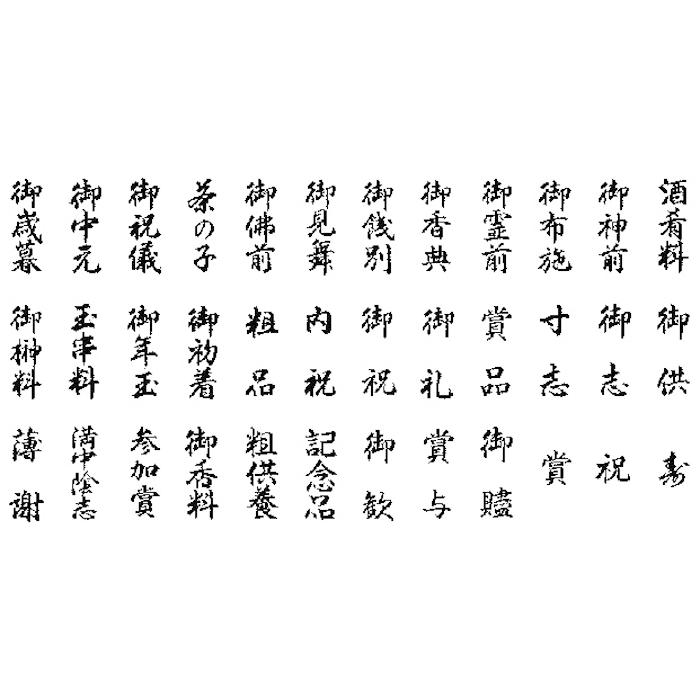 酒肴料
御神前
御布施
御霊前
御香典
御餞別
御見舞
御佛前
茶の子
御祝儀
御中元
御歳暮
御供
御志
寸志
賞品
御礼
御祝
内祝
粗品
御初着
御年玉
玉串料
御榊料
寿
祝
賞
御贐
賞与
御歓
記念品
粗供養
御香料
参加賞
満中陰志
薄謝